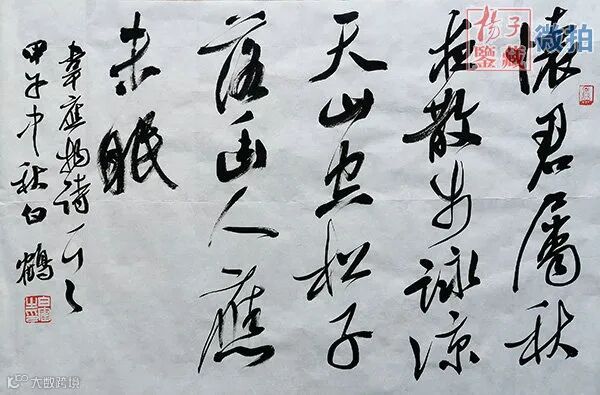 懷君屬秋
夜散步詠涼
天山空松子
落幽人應
未眠
韋應物詩一首
甲午中秋白鶴
揚子
鑒藏
微拍
大数跨境